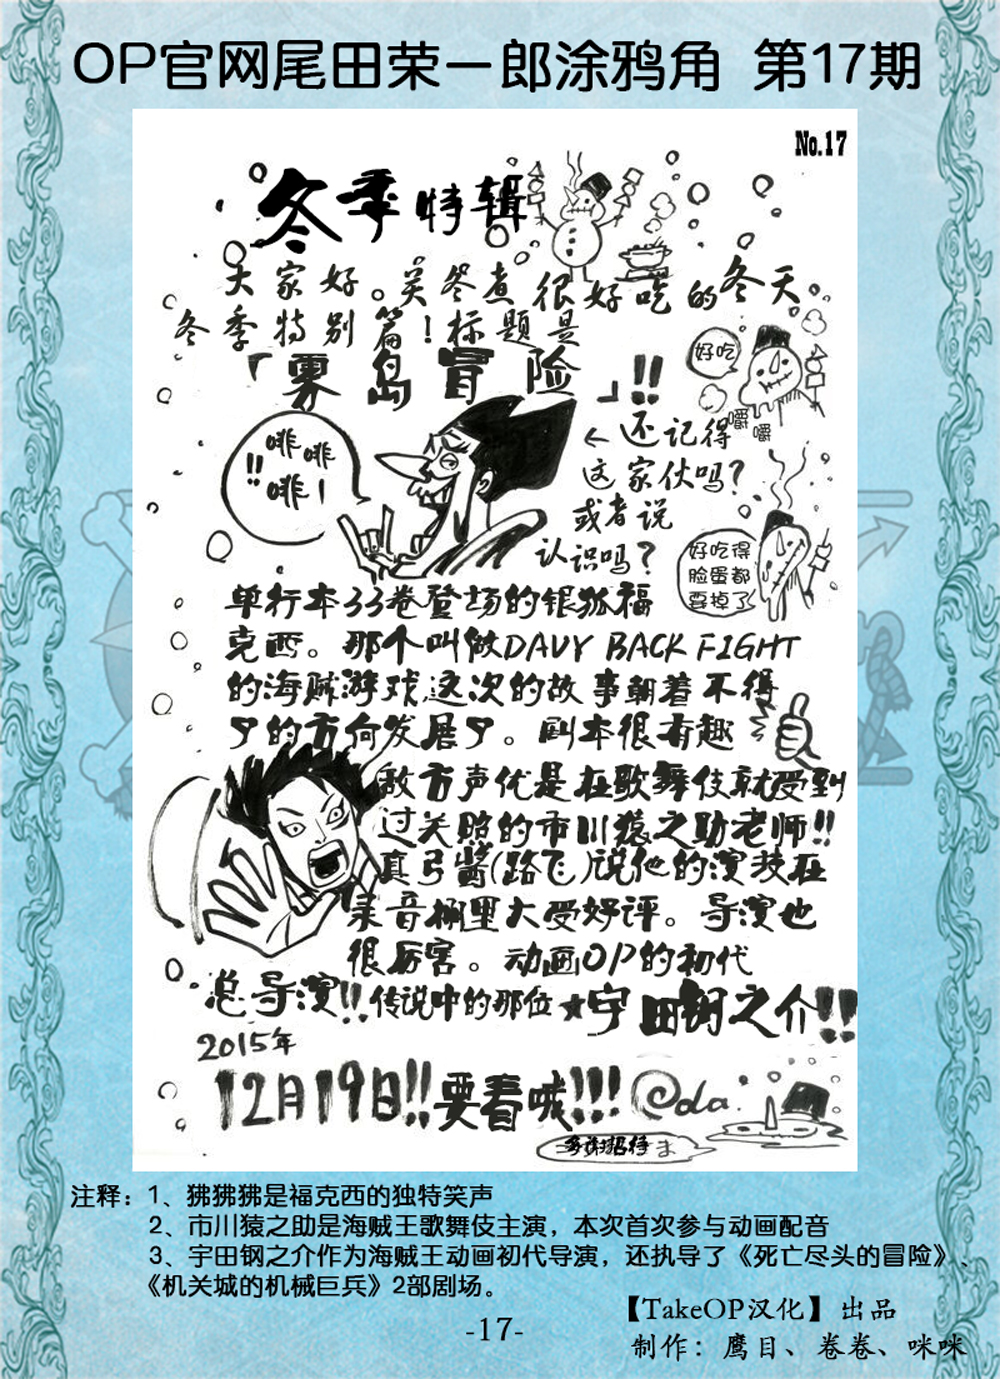 OP官网尾田荣一郎涂鸦角 第17期
No.17
冬季特辑
大家好。关冬煮很好吃的冬天
冬季特别篇!标题是
「雾岛冒险」!!
好吃
嚼嚼
啡啡
啡!!!
←还记得
这家伙吗?
或者说
认识吗?
好吃得
脸蛋都
要掉了
单行本33卷登场的银狐福
克西。那个叫做DAVY BACK FIGHT
的海贼游戏,这次的故事朝着不得
了的方向发展了。剧本很有趣
敌方声优是在歌舞伎就受到
过关照的市川猿之助老师!!
真弓酱(路飞)说他的演技在
录音棚里大受好评。导演也
很厉害。动画OP的初代
总导演!!传说中的那位★宇田钢之介!!
2015年
12月19日!!要看哦!!!
@oda.
多谢招待
注释:1、狒狒狒是福克西的独特笑声
2、市川猿之助是海贼王歌舞伎主演,本次首次参与动画配音
3、宇田钢之介作为海贼王动画初代导演,还执导了《死亡尽头的冒险》、
《机关城的机械巨兵》2部剧场。
【TakeOP汉化】出品
-17-
制作:鹰目、卷卷、咪咪